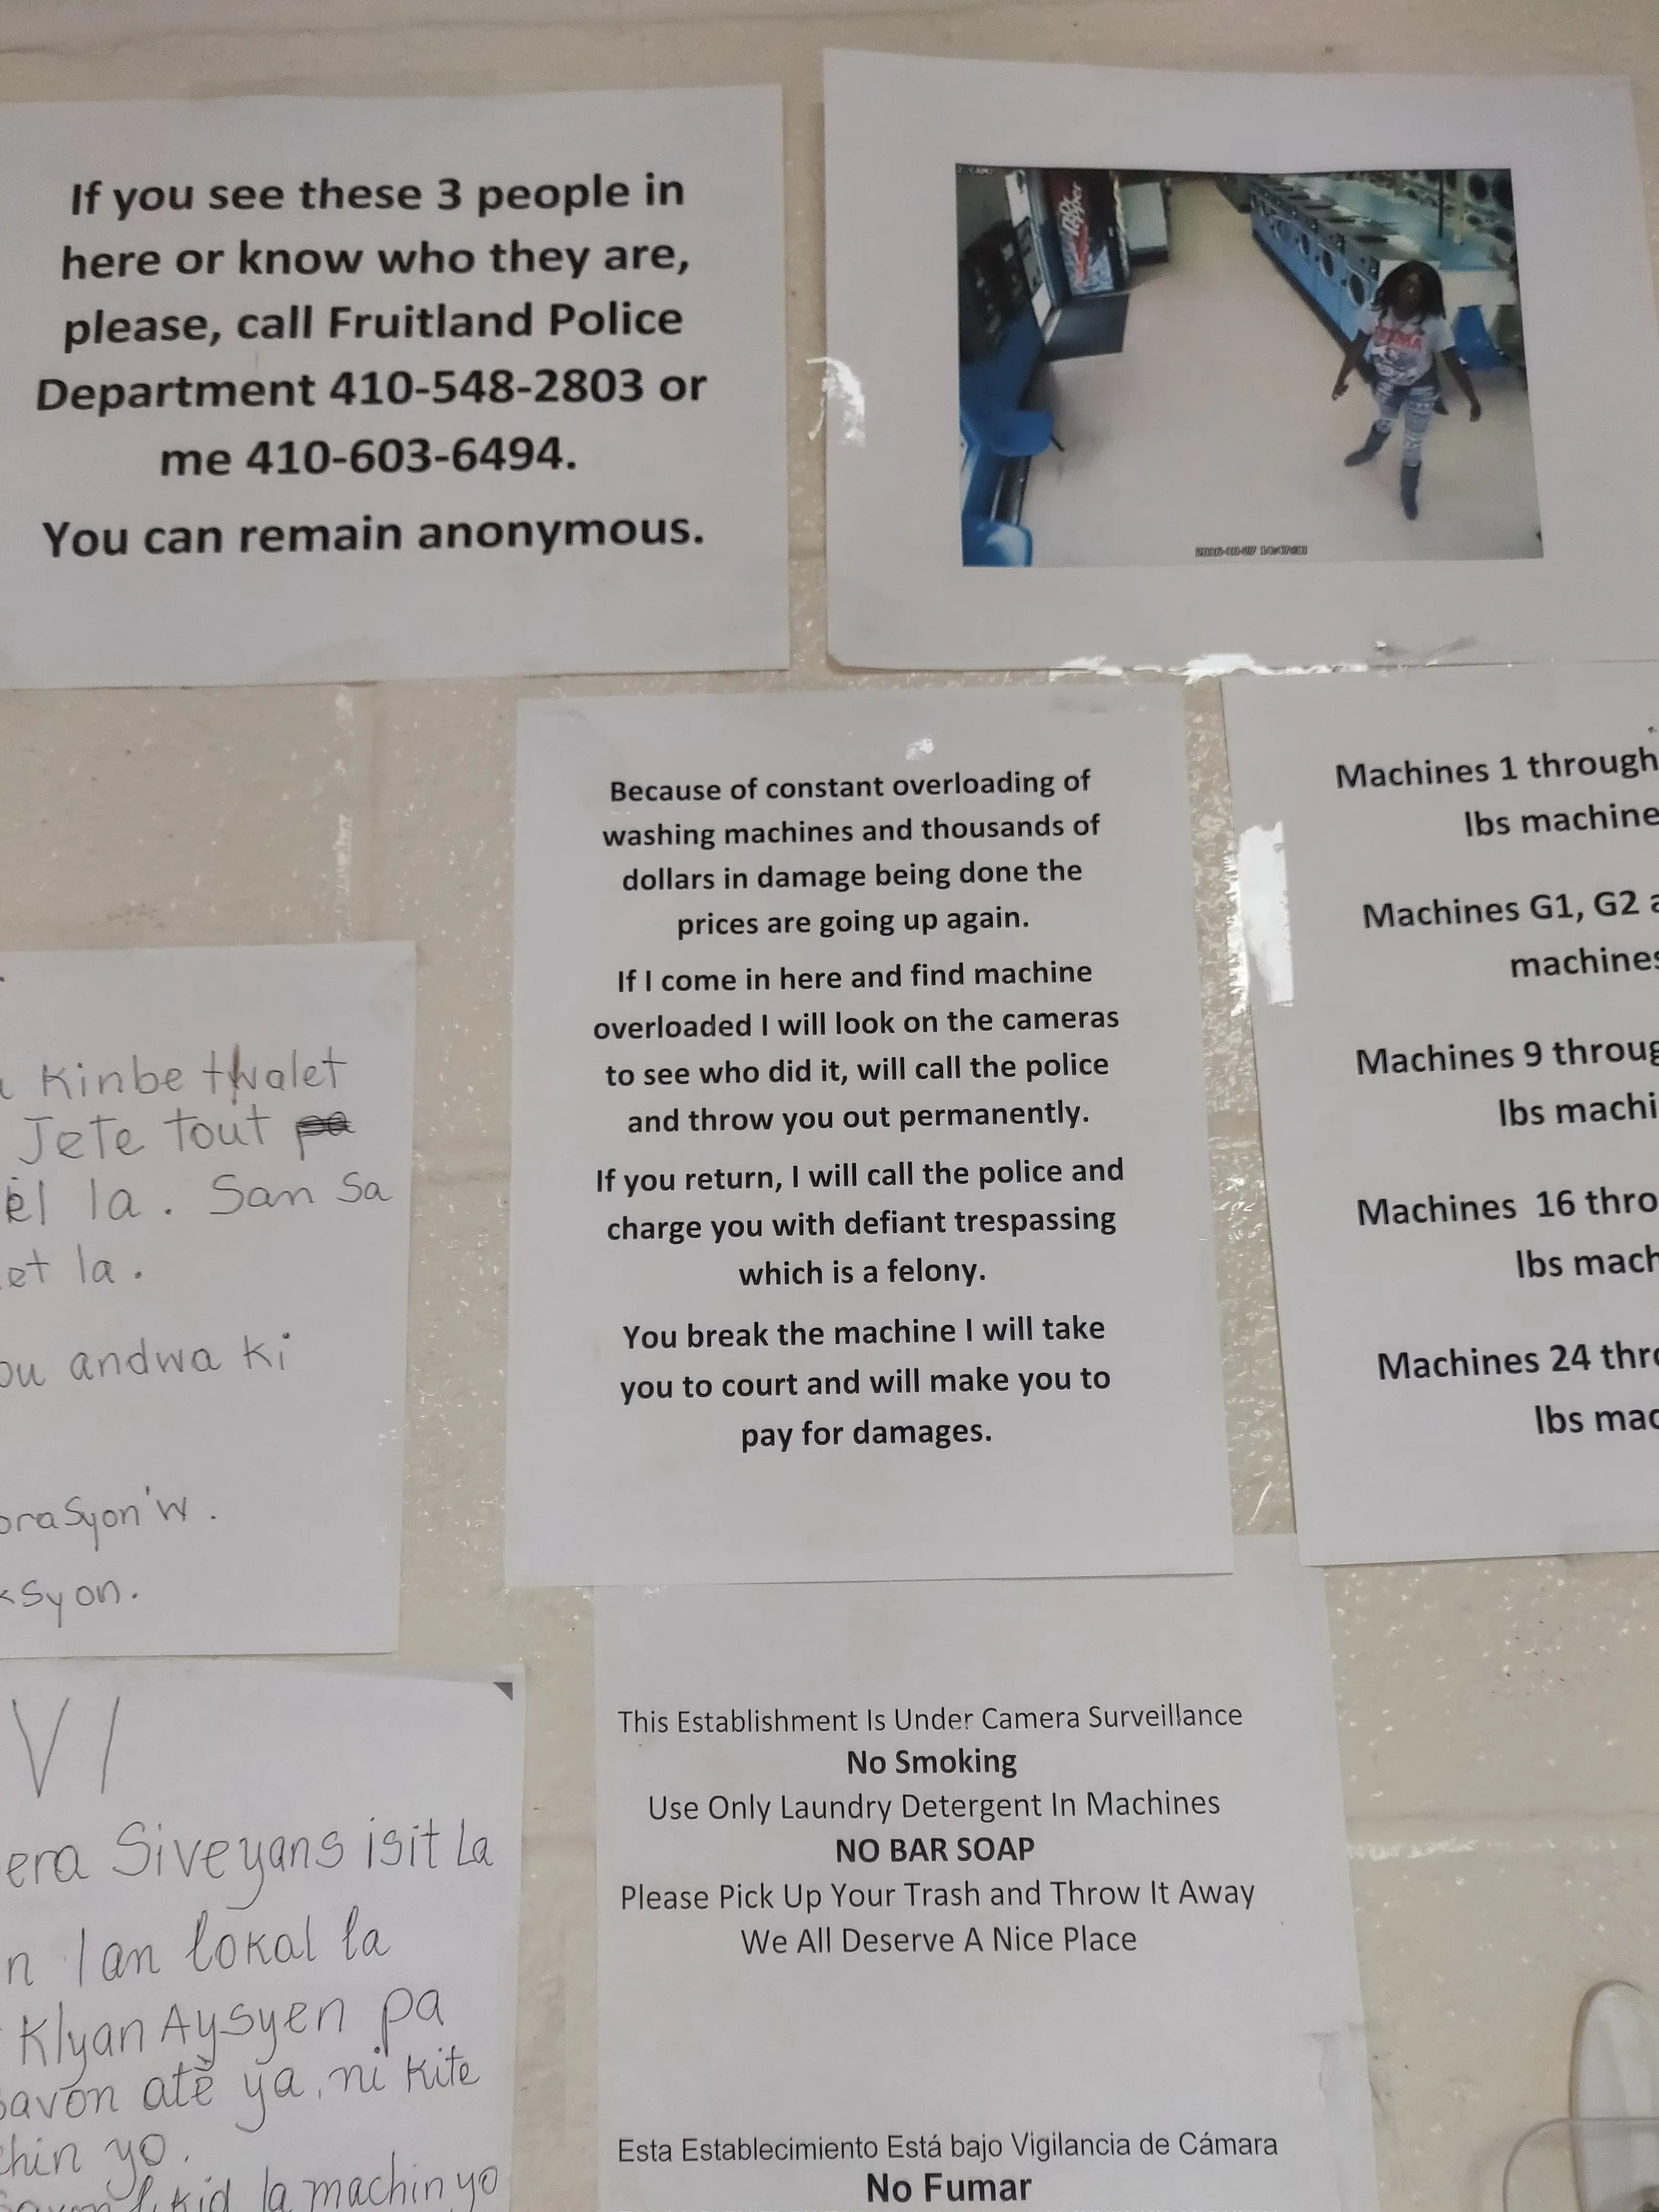 If you see these 3 people in
here or know who they are,
please, call Fruitland Police
Department 410-548-2803 or
me 410-603-6494.
You can remain anonymous.
Dr Pepper
Because of constant overloading of
washing machines and thousands of
dollars in damage being done the
prices are going up again.
If I come in here and find machine
overloaded I will look on the cameras
to see who did it, will call the police
and throw you out permanently.
If you return, I will call the police and
charge you with defiant trespassing
which is a felony.
You break the machine I will take
you to court and will make you to
pay for damages.
Machines 1 through
lbs machine
Machines G1, G2
machines
Machines 9 throug
lbs machi
Machines 16 thro
lbs mach
Machines 24 thro
lbs mac
Kinbe twalet
Jete tout
èl la. San Sa
et la.
ou andwa ki
orasyon'w.
ksyon.
VI
era Siveyans isit La
n lan lokal la
Klyan Aysyen pa
savon atè ya, ni kite
chin yo.
kid la machin yo
This Establishment Is Under Camera Surveillance
No Smoking
Use Only Laundry Detergent In Machines
NO BAR SOAP
Please Pick Up Your Trash and Throw It Away
We All Deserve A Nice Place
Esta Establecimiento Está bajo Vigilancia de Cámara
No Fumar